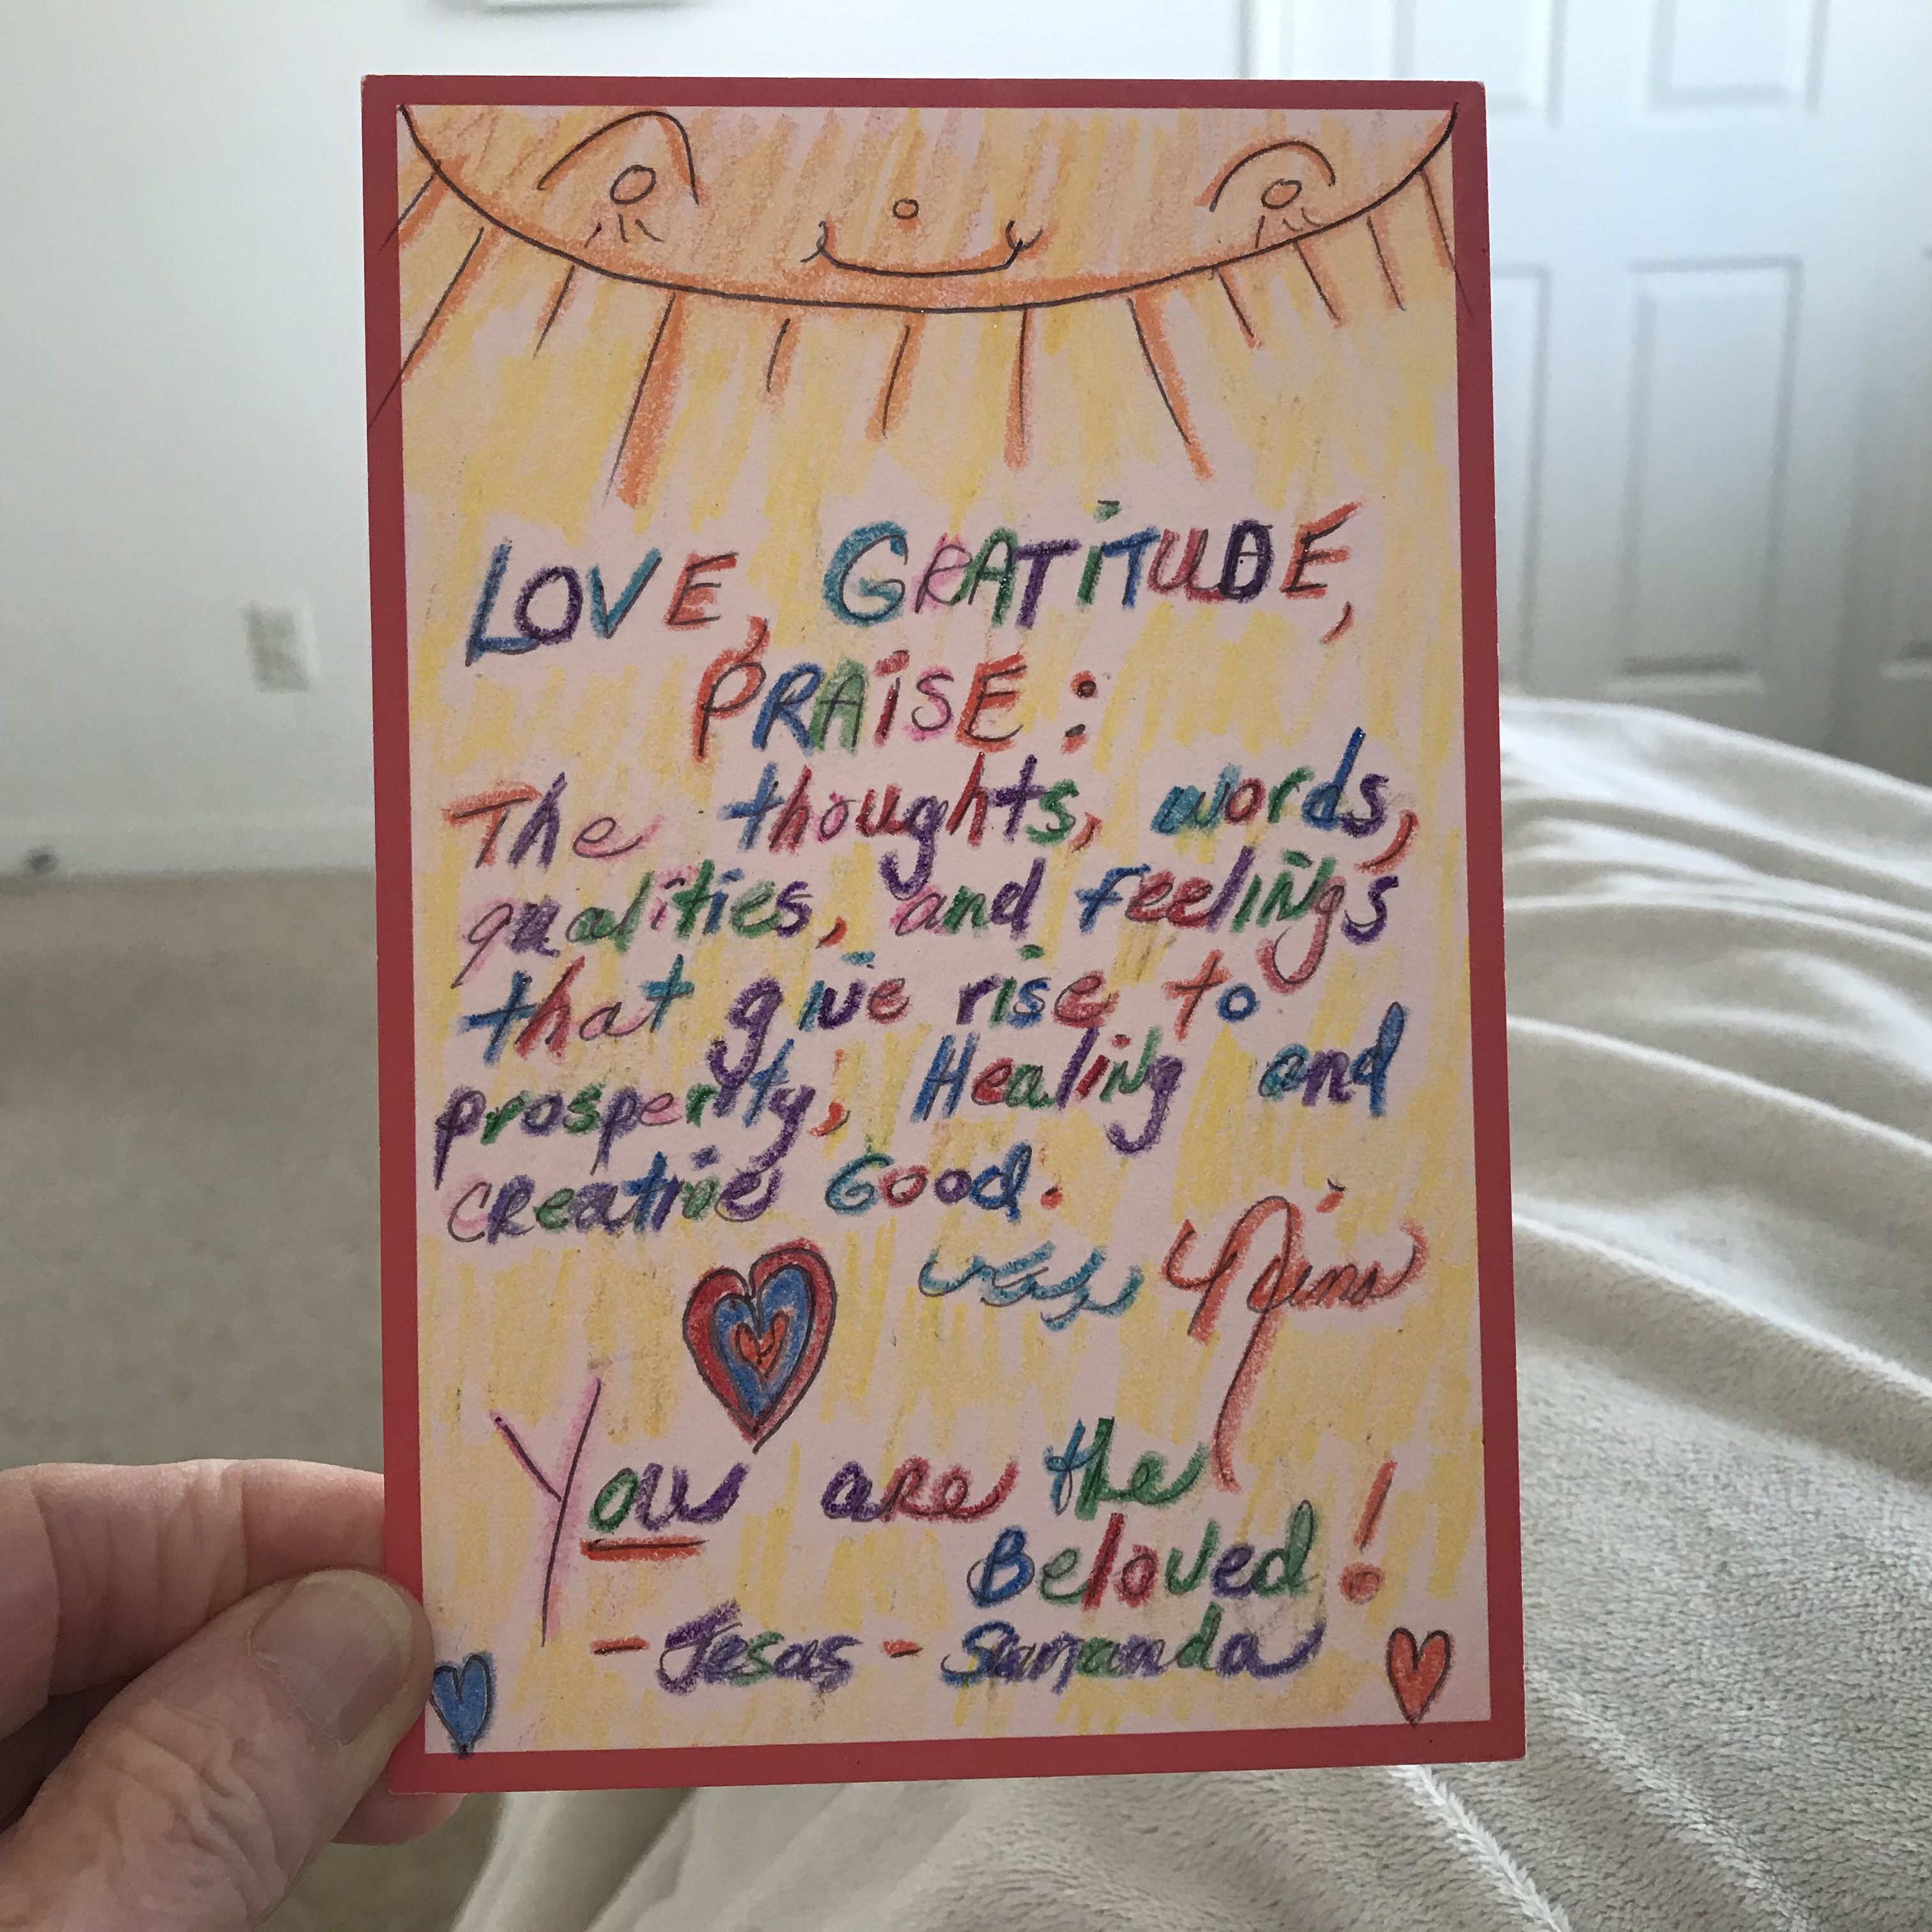 LOVE, GRATiTUDE,
PRAiSE:
The thoughts, words,
qualities, and Feelings
that give rise to
prosperity, Healing and
creative Good.
You are the
Beloved!
- Jesas - Samanda